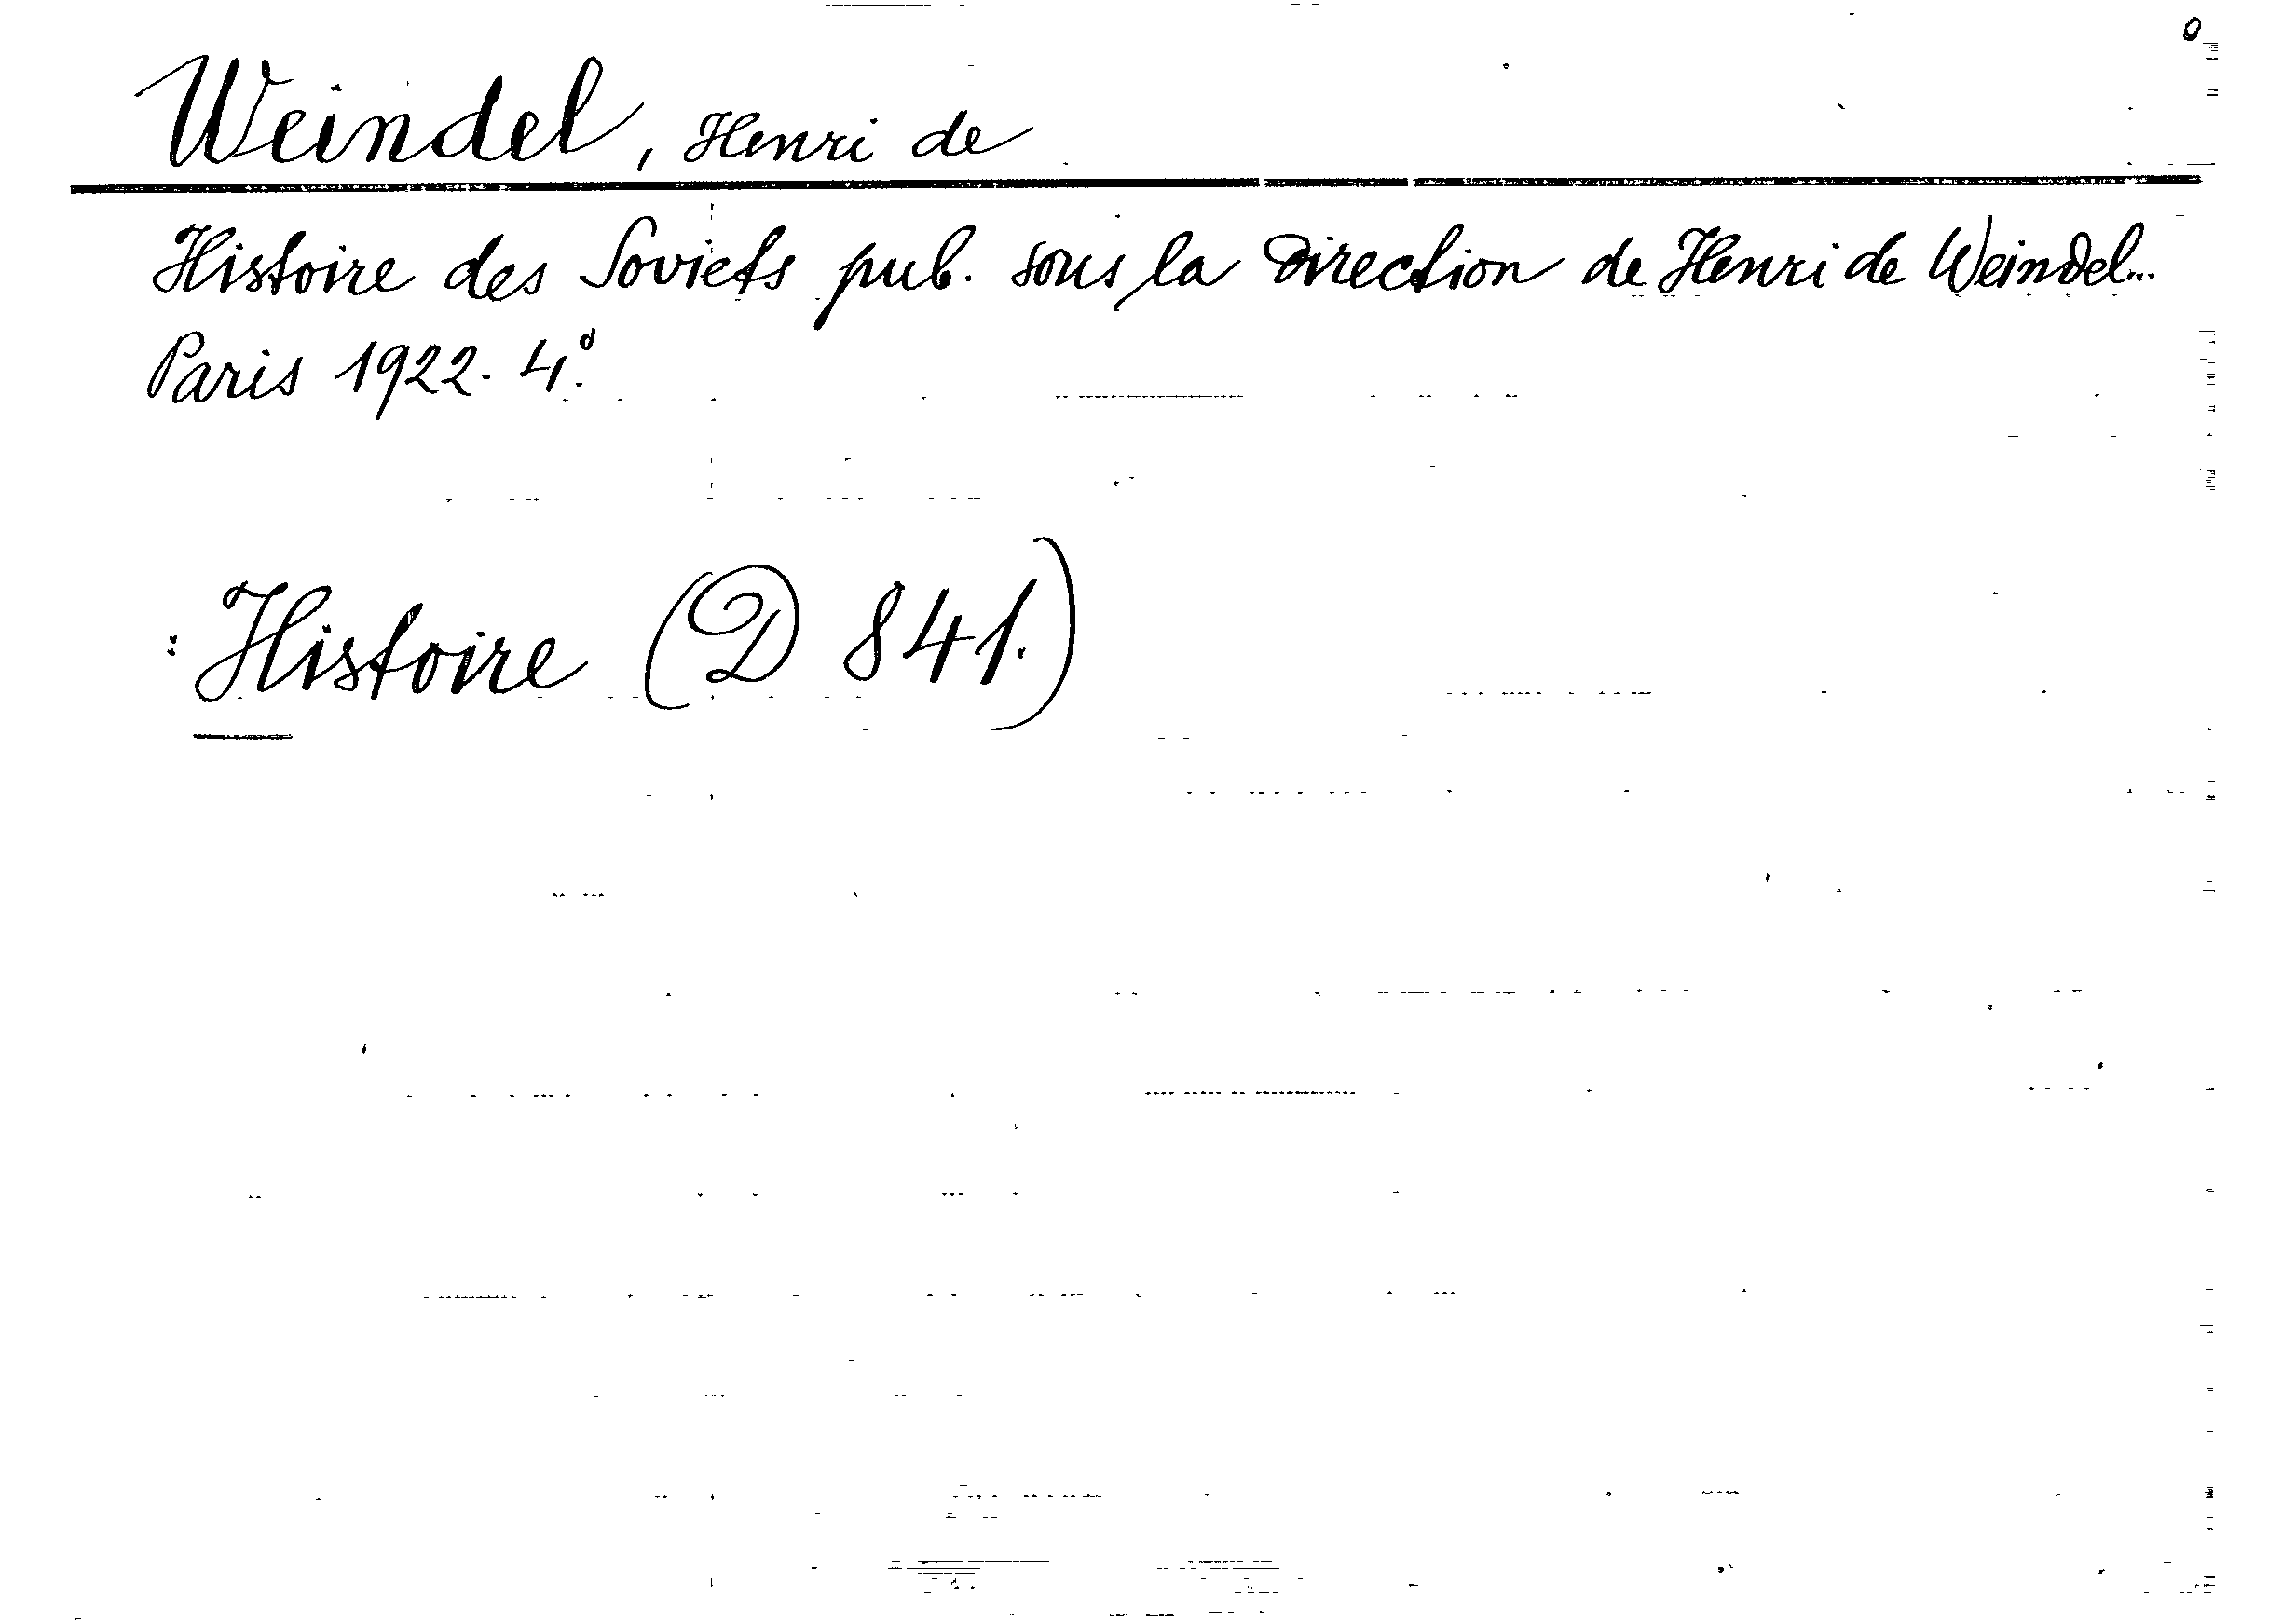 Weindel, Henri de
Histoire des Soviets pub. sous la Direction de Henri de Weindel...
Paris 1922. 4.°
: Histoire (D 841.)